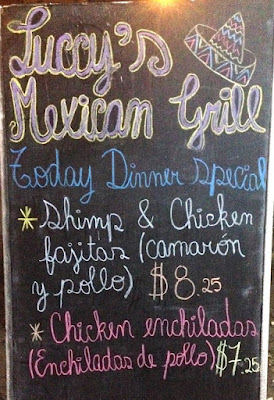 Luccy's
Mexican Grill
Today Dinner special
* Shimp & Chicken
fajitas (camarón
y pollo) $8.25
* Chicken enchiladas
(Enchiladas de pollo) $7.25